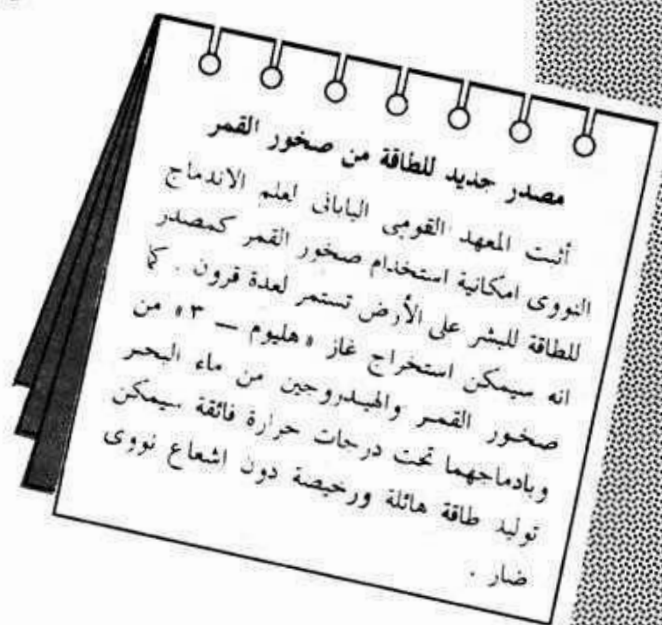 مصدر جديد للطاقة من صخور القمر
أثبت المعهد القومى اليابانى لعلم الاندماج
النووى امكانية استخدام صخور القمر كمصدر
للطاقة للبشر على الأرض تستمر لعدة قرون . كما
انه سيمكن استخراج غاز « هليوم — ٣ » من
صخور القمر والهيدروجين من ماء البحر
وبادماجهما تحت درجات حرارة فائقة سيمكن
توليد طاقة هائلة ورخيصة دون اشعاع نووى
ضار .